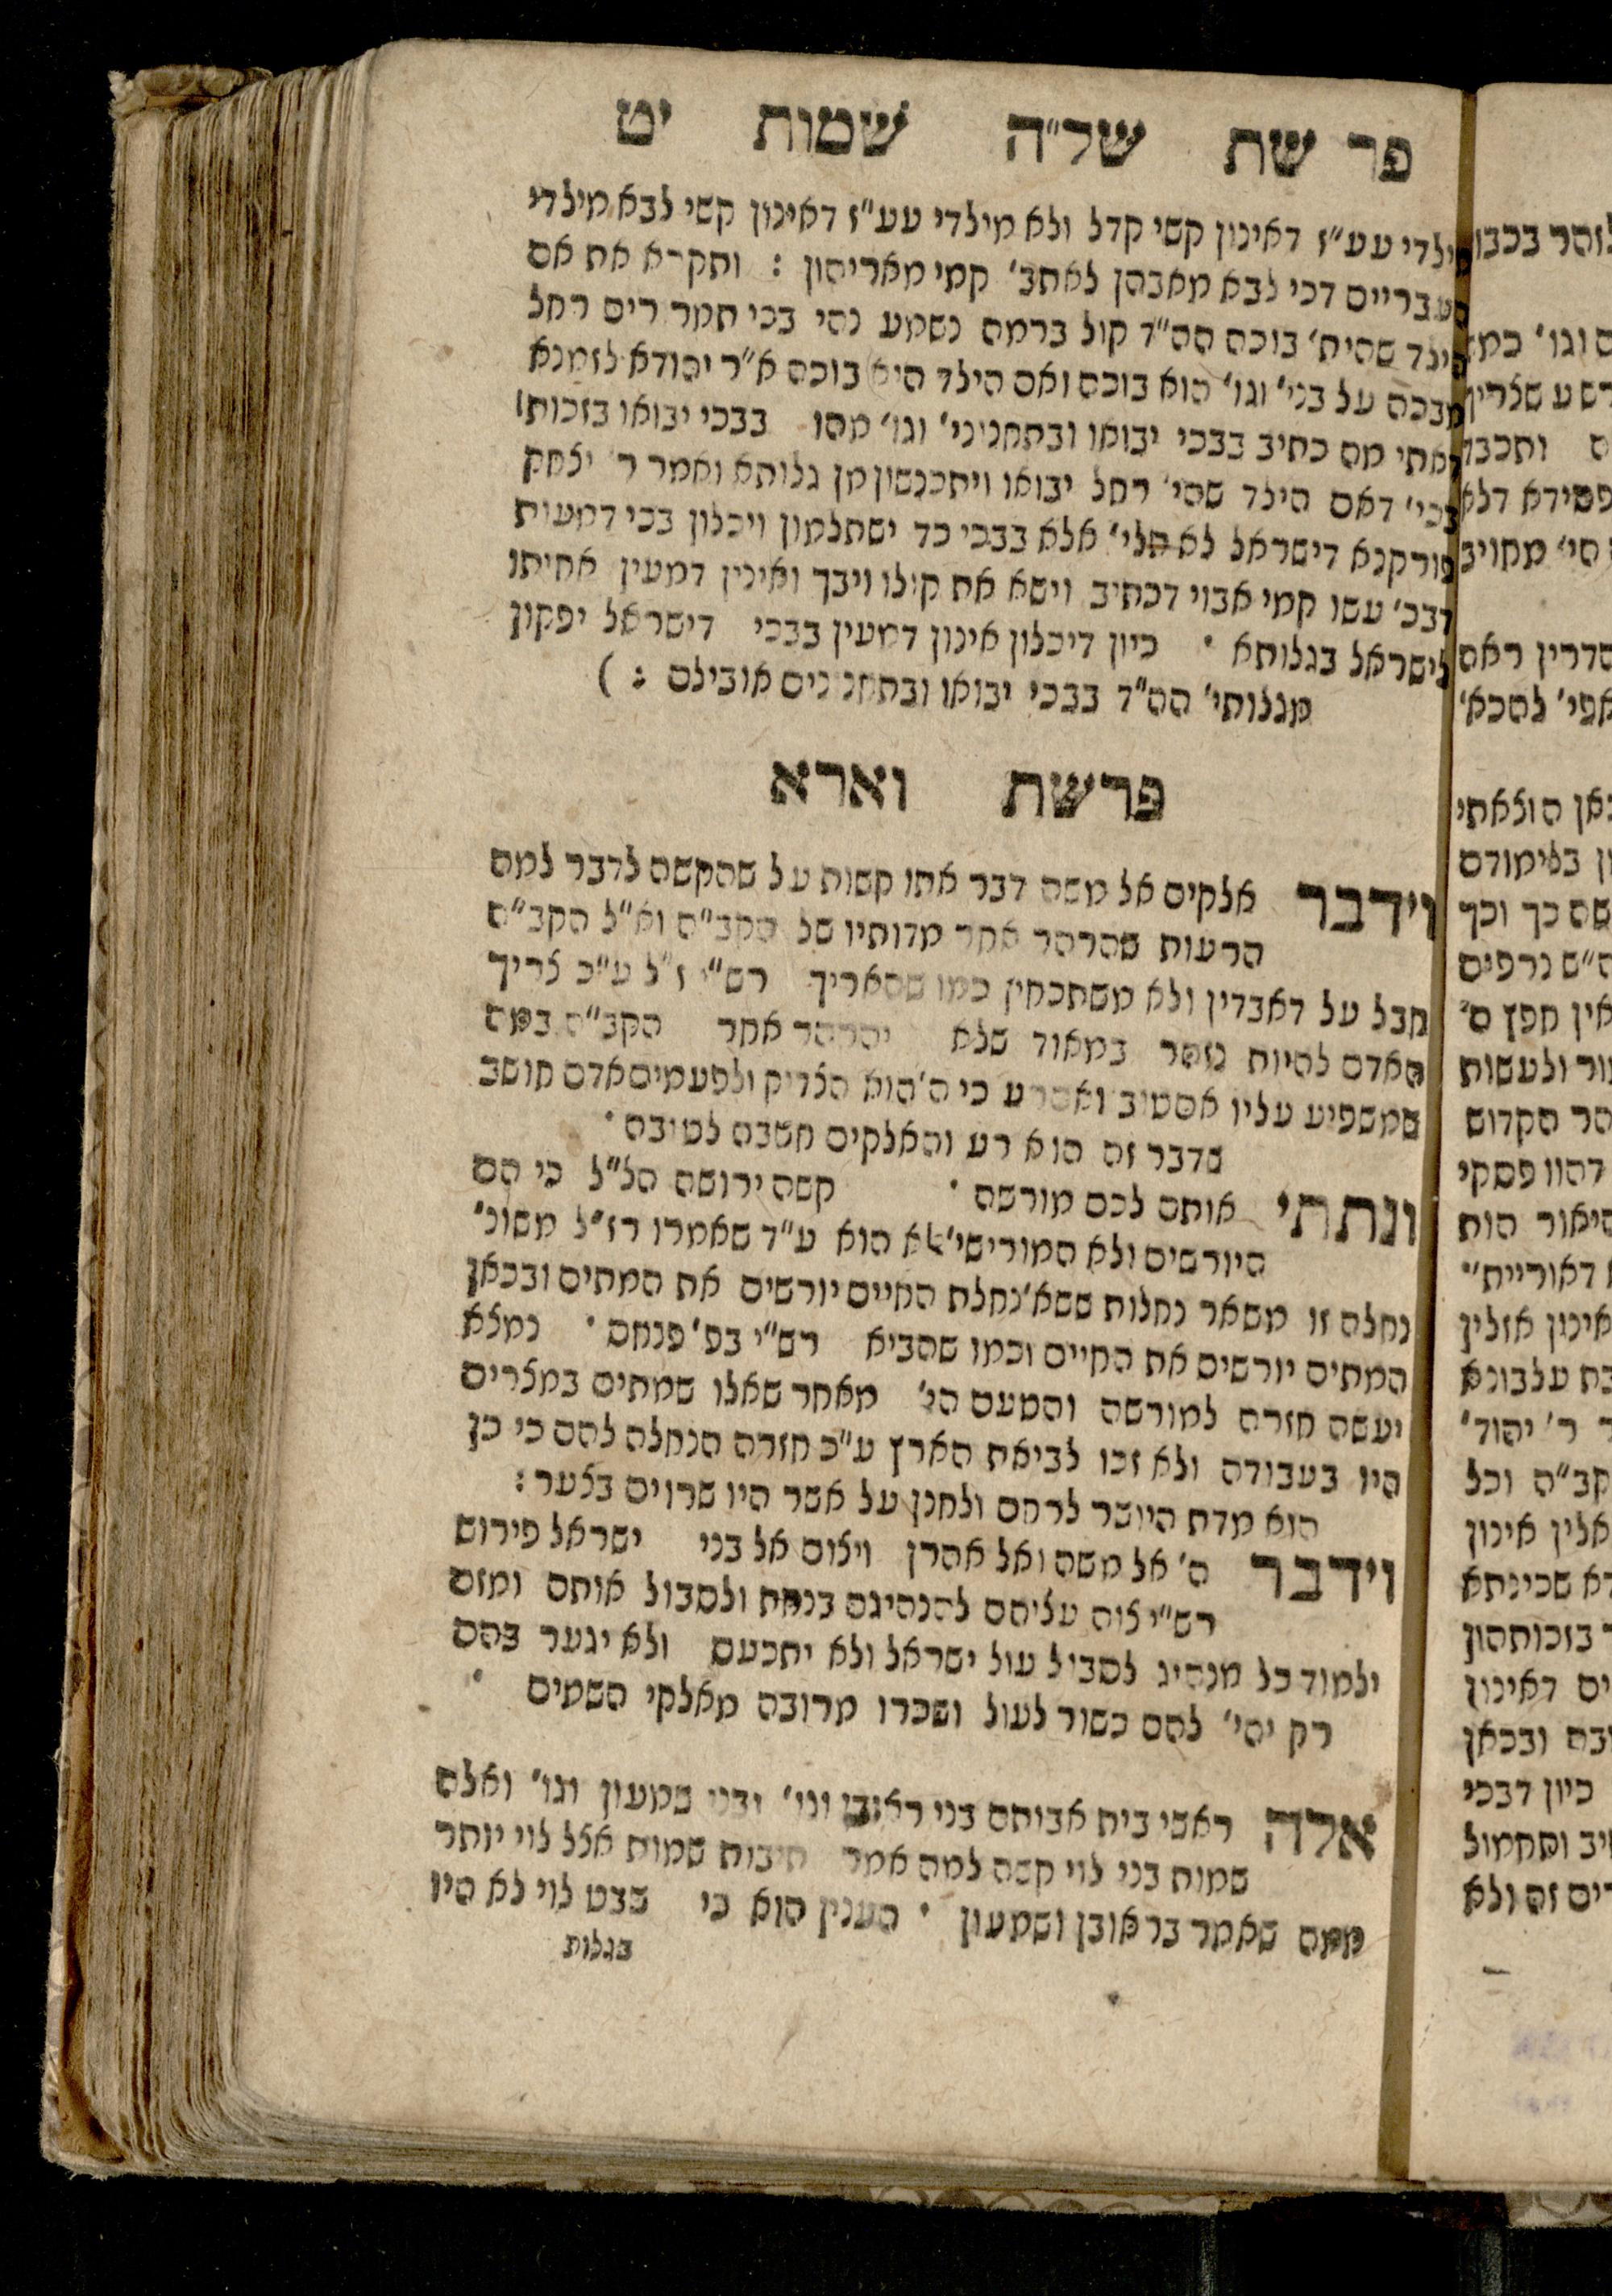 פרשת של״ה שמות יט
מילדי עע״ז דאינון קשי קדל ולא מילדי עע״ז דאינון קשי לבא מילדי
העבריים דכי לבא מאבהן לאתב׳ קמי מאריהון : ותקרא את אם
הילד שהית׳ בוכה הה״ד קול ברמה נשמע נהי בכי תמרורים רחל
מבכה על בני׳ וגו׳ הוא בוכה ואם הילד היא בוכה א״ר יהודא לזמנא
דאתי מה כתיב בבכי יבואו ובתחנוני׳ וגו׳ מהו בבכי יבואו בזכותו
בכי׳ דאם הילד שהי׳ רחל יבואו ויתכנשון מן גלותא ואמר ר׳ יצחק
פורקנא דישראל לא תלי׳ אלא בבכי כד ישתלמון ויכלון בכי דמעות
דבכ׳ עשו קמי אבוי דכתיב וישא את קולו ויבך ואינין דמעין אחיתו
לישראל בגלותא • כיון דיכלון אינון דמעין בבכי דישראל יפקון
מגלותי׳ הה״ד בבכי יבואו ובתחנונים אובילם : )
פרשת וארא
וידבר אלקים אל משה דבר אתו קשות על שהקשה לדבר למה
הרעות שהרהר אחר מדותיו של הקב״ה וא״ל הקב״ה
חבל על דאבדין ולא משתכחין כמו שהאריך רש״י ז״ל ע״כ צריך
האדם להיות נזהר במאוד שלא יהרהר אחר הקב״ה במה
שמשפיע עליו אם טוב ואם רע כי ה׳ הוא הצדיק ולפעמים אדם חושב
שדבר זה הוא רע והאלקים חשבה לטובה •
ונתתי אותה לכם מורשה • קשה ירושה הל״ל כי הם
היורשים ולא המורישי׳ אלא הוא ע״ד שאמרו רז״ל משוני׳
נחלה זו משאר נחלות ששא׳ נחלת החיים יורשים את המתים ובכאן
המתים יורשים את החיים וכמו שהביא רש״י בפ׳ פנחס • נמצא
יעשה חזרה למורשה והטעם הי׳ מאחר שאלו שמתים במצרים
היו בעבודה ולא זכו לביאת הארץ ע״כ חזרה הנחלה להם כי כן
הוא מדת היושר לרחם ולחנן על אשר היו שרוים בצער :
וידבר ה׳ אל משה ואל אהרן ויצום אל בני ישראל פירוש
רש״י צוה עליהם להנהיגם בנחת ולסבול אותם ומזה
ילמוד כל מנהיג לסבול עול ישראל ולא יתכעס ולא יגער בהם
רק יהי׳ להם כשור לעול ושכרו מרובה מאלקי השמים •
אלה ראשי בית אבותם בני ראובן וגו׳ ובני שמעון וגו׳ ואלה
שמות בני לוי קשה למה אמר תיבות שמות אצל לוי יותר
ממה שאמר בראובן ושמעון • הענין הוא כי שבט לוי לא היו
בגלות